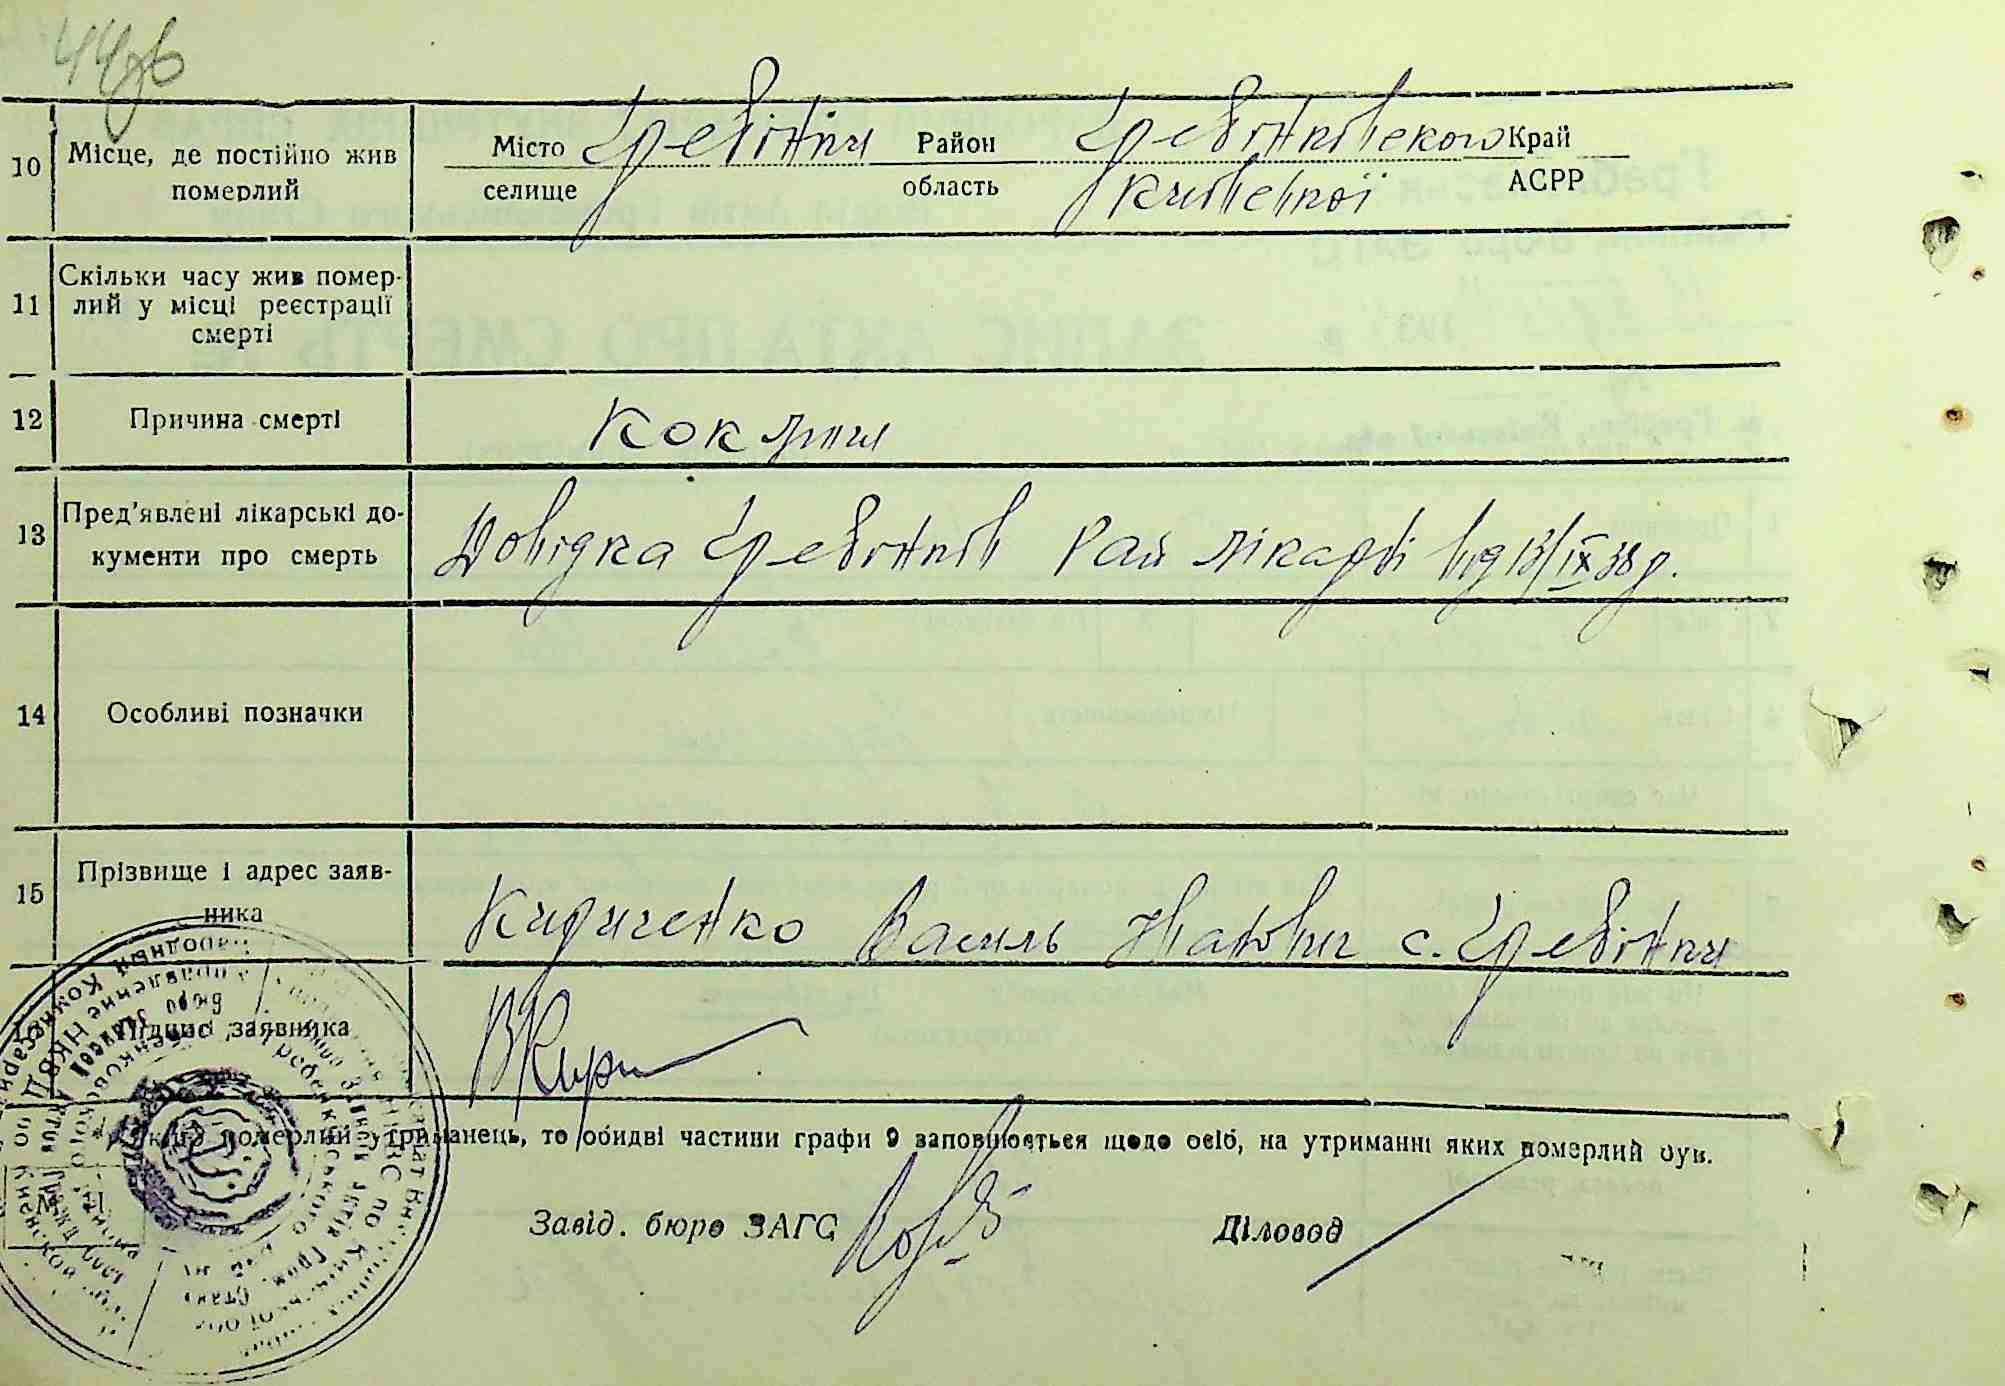 44 зв
10 Місце, де постійно жив померлий Місто селище Гребінки Район область Гребінківского Київської Край АСРР
11 Скільки часу жив помер-
лий у місці реєстрації
смерті
12 Причина смерті Коклюш
13 Пред'явлені лікарські до-
кументи про смерть Довідка Гребінків Рай лікарні від 13/IX 38 р.
14 Особливі позначки
15 Прізвище і адрес заяв-
ника Кириченко Василь Іванович с. Гребінки
Підпис заявника ВКири
померлий утриманець, то обидві частини графи 9 заповнюється щодо осіб, на утриманні яких померлий був.
Завід. бюро ЗАГС Діловод